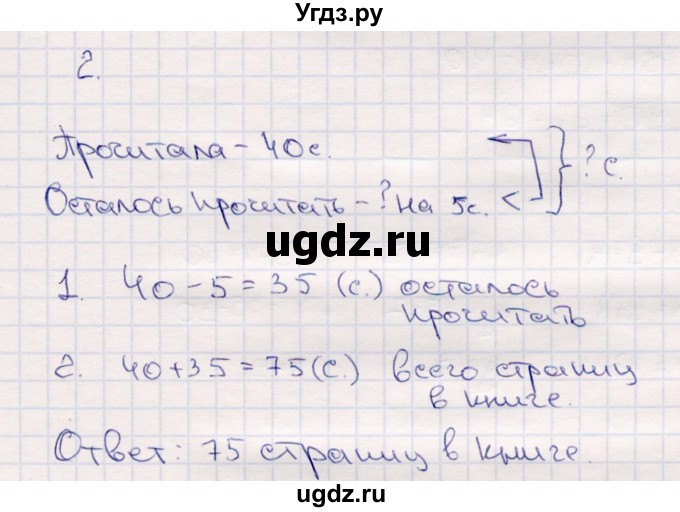 Угдз.ру
2.
Прочитала – 40 с.
Осталось прочитать – ? на 5с. <
} ? с.
ugdz.ru
1. 40 – 5 = 35 (с.) осталось
прочитать
2. 40 + 35 = 75 (с.) всего страниц
в книге.
Ответ: 75 страниц в книге.
ugdz.ru